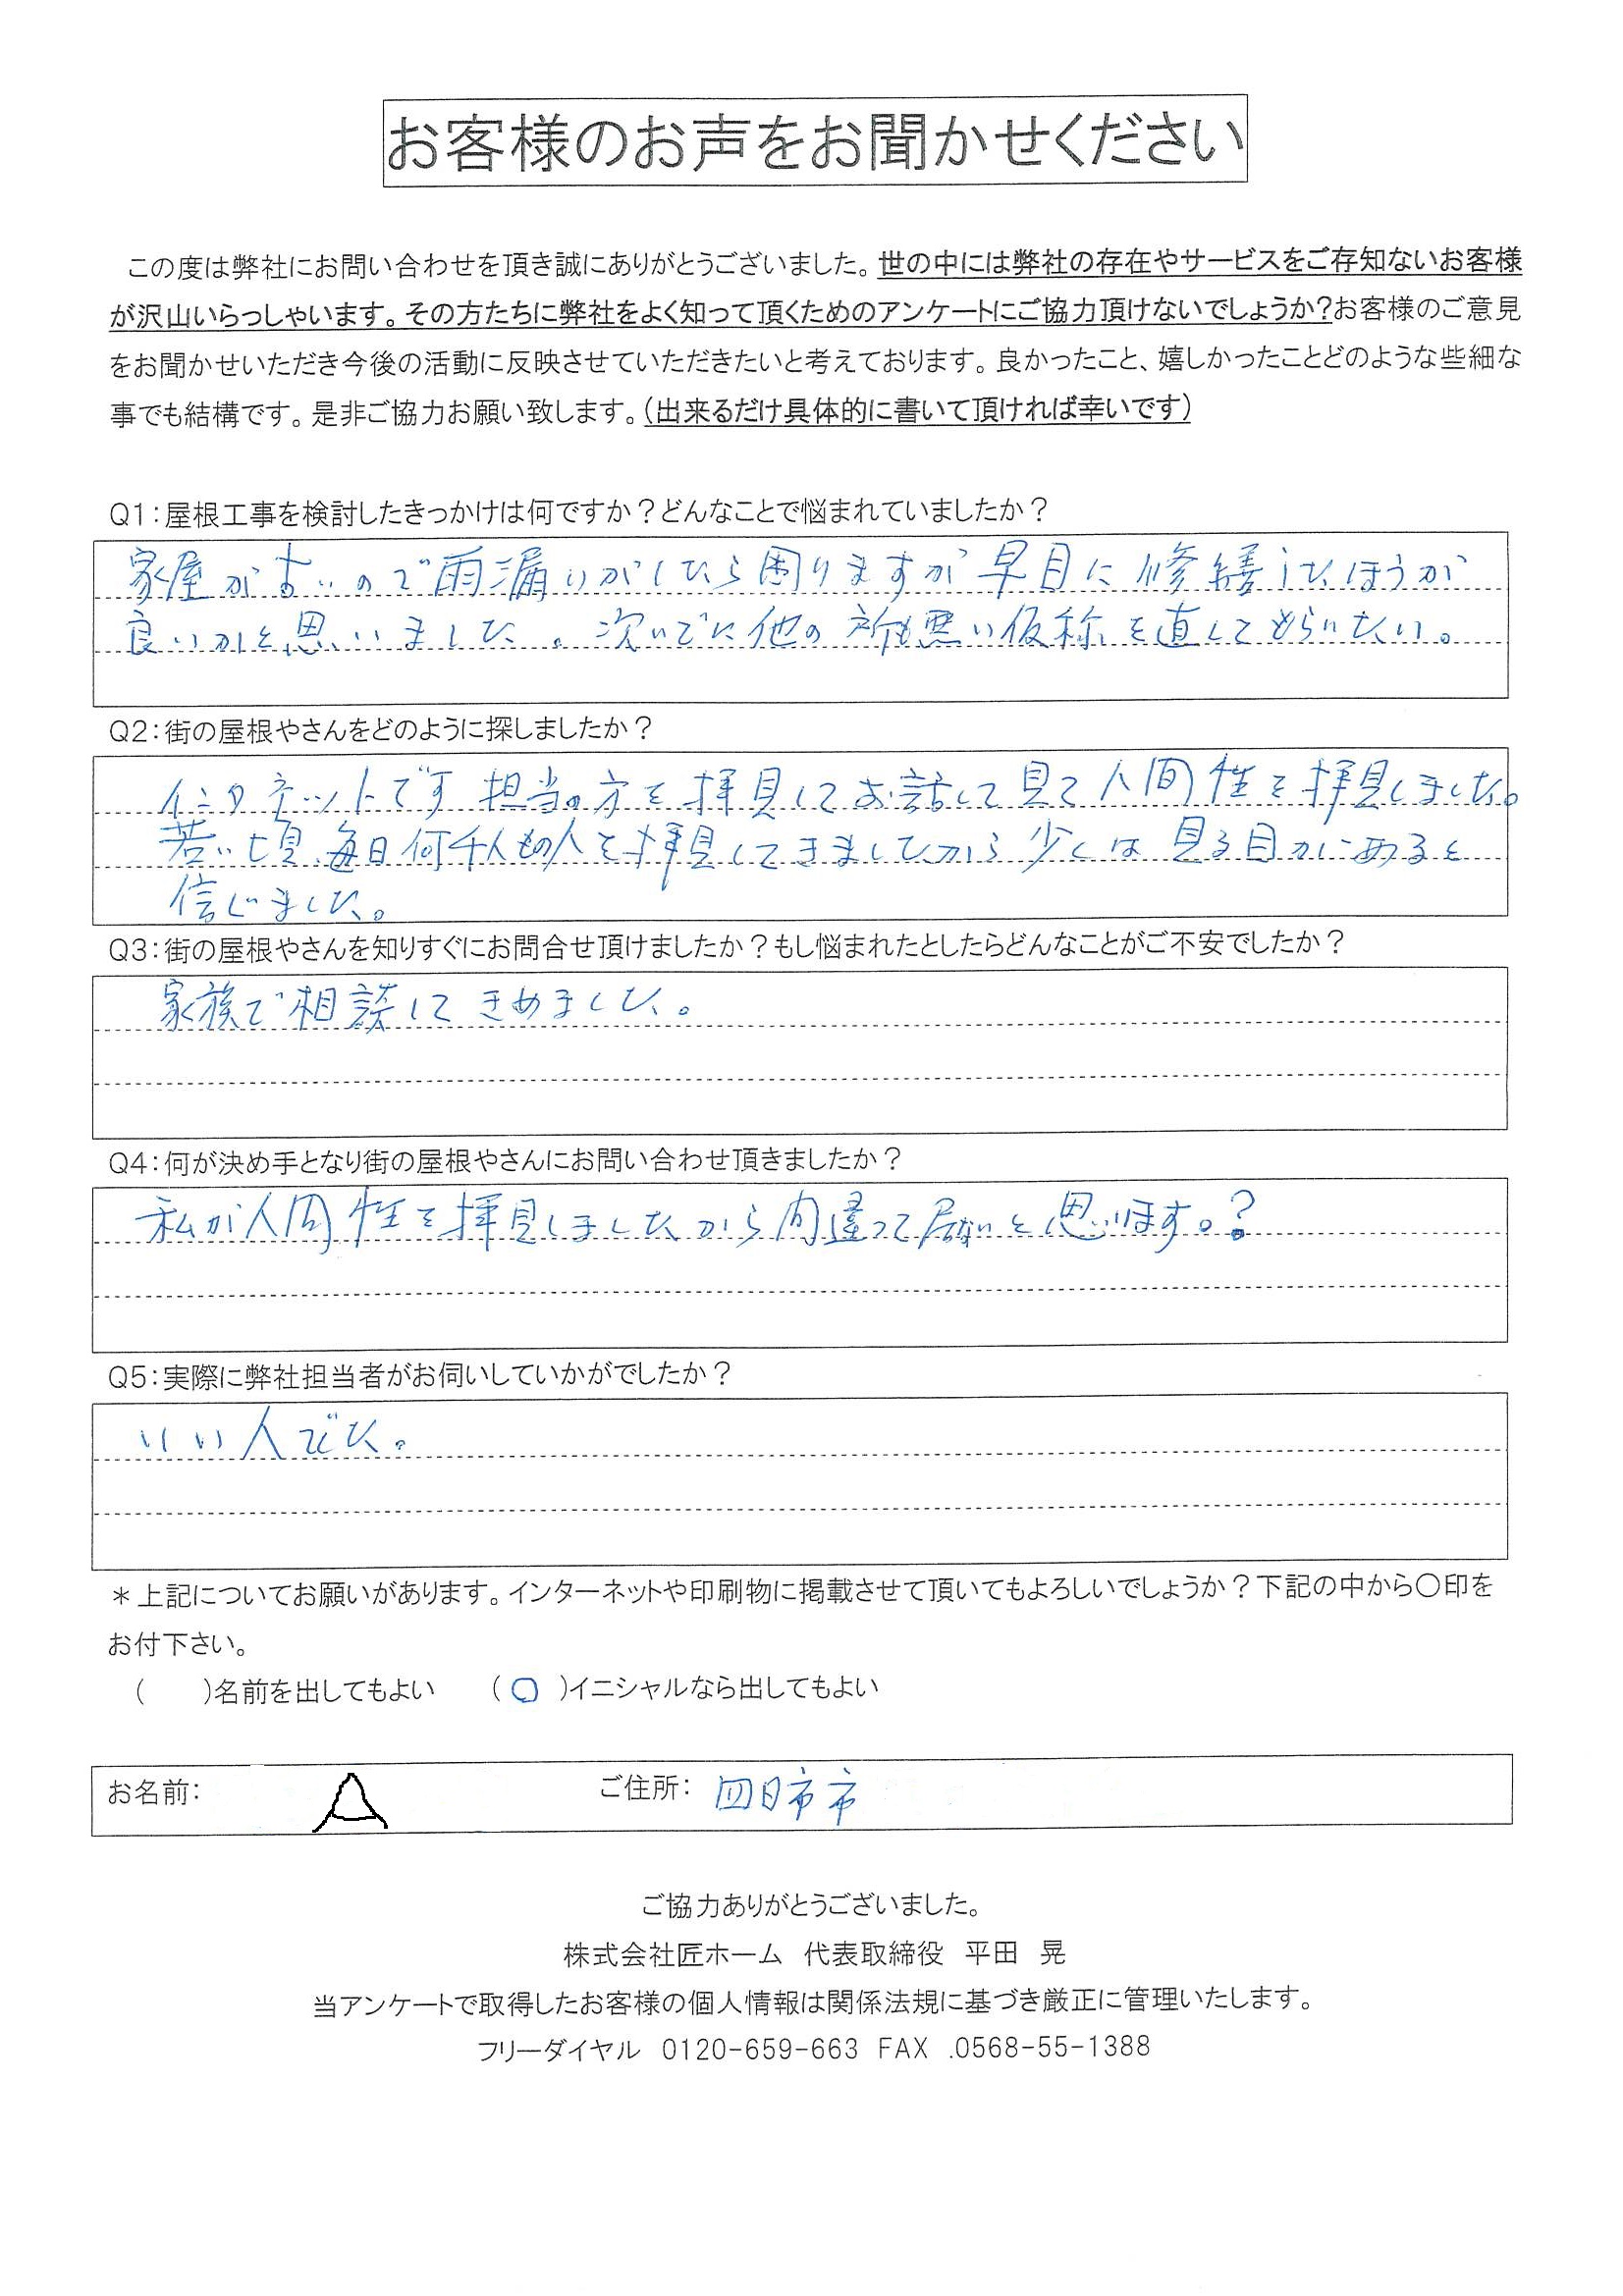 お客様のお声をお聞かせください
この度は弊社にお問い合わせを頂き誠にありがとうございました。世の中には弊社の存在やサービスをご存知ないお客様
が沢山いらっしゃいます。その方たちに弊社をよく知って頂くためのアンケートにご協力頂けないでしょうか?お客様のご意見
をお聞かせいただき今後の活動に反映させていただきたいと考えております。良かったこと、嬉しかったことどのような些細な
事でも結構です。是非ご協力お願い致します。(出来るだけ具体的に書いて頂ければ幸いです)
Q1:屋根工事を検討したきっかけは何ですか?どんなことで悩まれていましたか?
家屋が古いので雨漏りがしたら困りますが早目に修繕したほうが
良いかと思いました。次いでに他の所も悪い仮称を直してもらいたい。
Q2:街の屋根やさんをどのように探しましたか?
インタネットです担当の方を拝見してお話して見て人間性を拝見しました。
若い頃、毎日何千人もの人を拝見してきましたから少しは見る目がにあると
信じました。
Q3:街の屋根やさんを知りすぐにお問合せ頂けましたか?もし悩まれたとしたらどんなことがご不安でしたか?
家族で相談してきめました。
Q4:何が決め手となり街の屋根やさんにお問い合わせ頂きましたか?
私が人間性を拝見しましたから間違って居ないと思います。?
Q5:実際に弊社担当者がお伺いしていかがでしたか?
いい人でした。
*上記についてお願いがあります。インターネットや印刷物に掲載させて頂いてもよろしいでしょうか?下記の中から〇印を
お付下さい。
(　　)名前を出してもよい　(〇)イニシャルなら出してもよい
お名前: A ご住所: 四日市市
ご協力ありがとうございました。
株式会社匠ホーム 代表取締役 平田 晃
当アンケートで取得したお客様の個人情報は関係法規に基づき厳正に管理いたします。
フリーダイヤル 0120-659-663 FAX .0568-55-1388